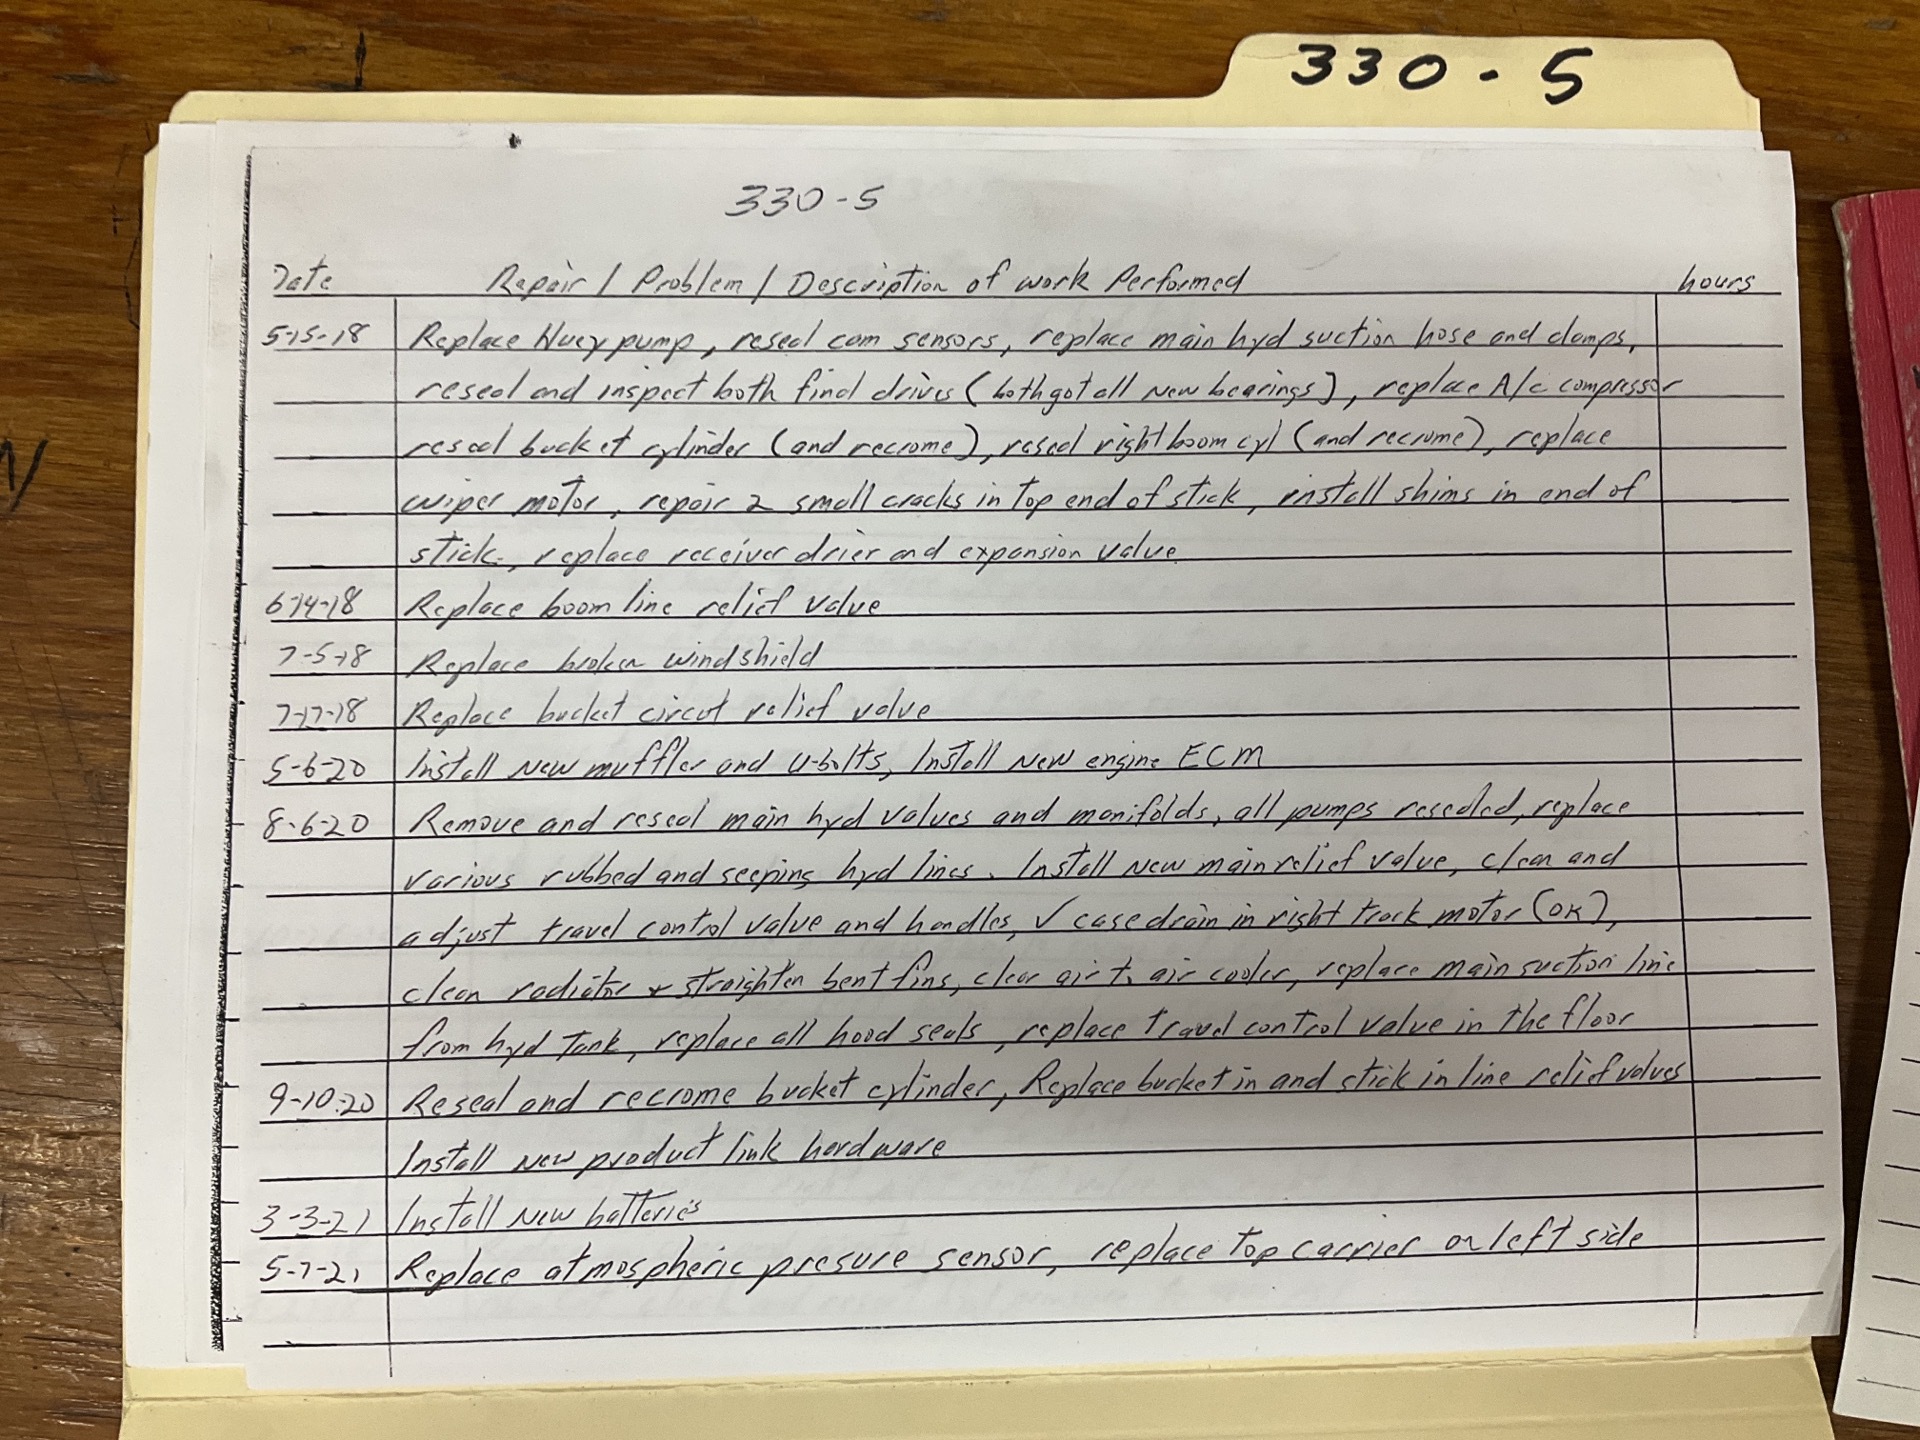 330-5
330-5
Date Repair / Problem / Description of work Performed hours
5-15-18 Replace Huey pump, reseal cam sensors, replace main hyd suction hose and clamps,
reseal and inspect both final drives (both got all New bearings), replace A/c compressor
reseal bucket cylinder (and recrome), reseal right boom cyl (and recrome), replace
wiper motor, repair 2 small cracks in top end of stick, install shims in end of
stick, replace receiver drier and expansion valve
6-14-18 Replace boom line relief valve
7-5-18 Replace broken windshield
7-17-18 Replace bucket circut relief valve
5-6-20 Install New muffler and U-bolts, Install New engine ECM
8-6-20 Remove and reseal main hyd valves and manifolds, all pumps resealed, replace
various rubbed and seeping hyd lines. Install new main relief valve, clean and
adjust travel control valve and handles, ✓ case drain in right track motor (OK),
clean radiator & straighten bent fins, clear air to air cooler, replace main suction line
from hyd Tank, replace all hood seals, replace travel control valve in the floor
9-10-20 Reseal and recrome bucket cylinder, Replace bucket in and stick in line relief valves
Install New product link hardware
3-3-21 Install New batteries
5-7-21 Replace atmospheric presure sensor, replace top carrier on left side